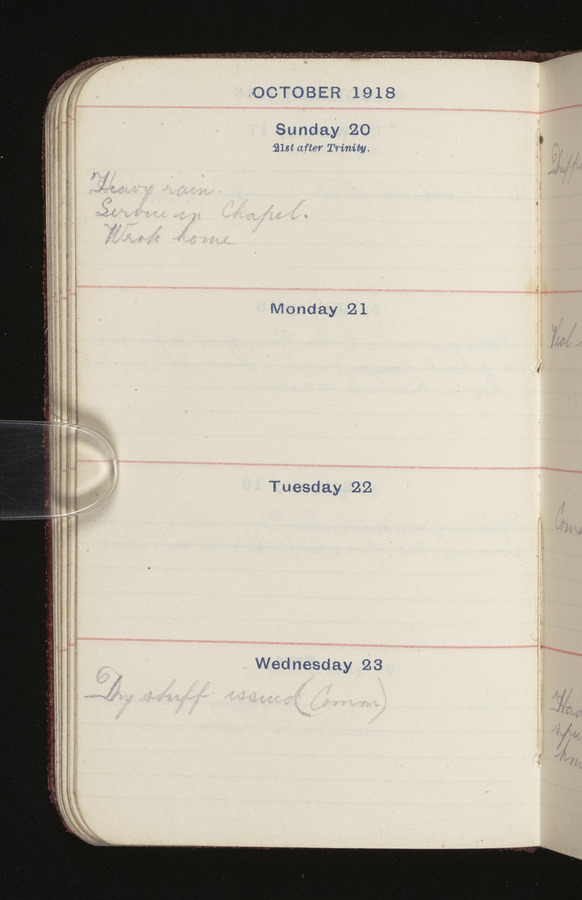 OCTOBER 1918
Sunday 20
21st after Trinity.
Heavy rain.
Service in Chapel.
Wrote home
Monday 21
Tuesday 22
Wednesday 23
Dry stuff issued (Comm)